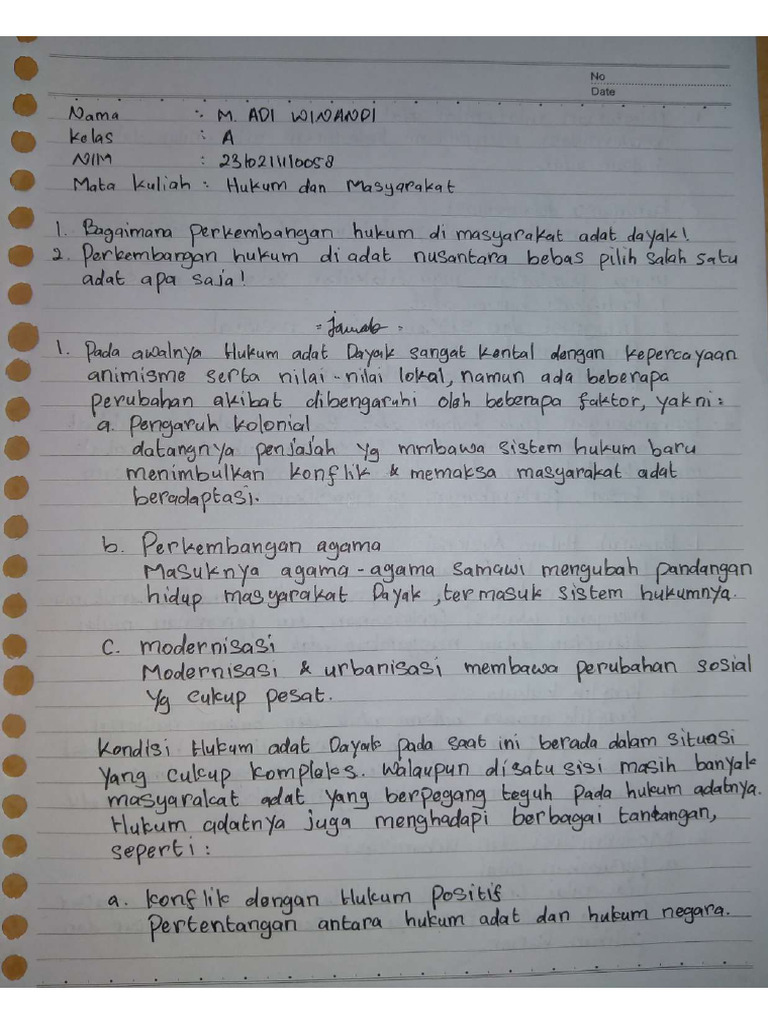 No
Date
Nama : M. ADI WINANDI
Kelas : A
NIM : 231021110058
Mata kuliah : Hukum dan Masyarakat
1. Bagaimana perkembangan hukum di masyarakat adat dayak!
2. Perkembangan hukum di adat nusantara bebas pilih salah satu
adat apa saja!
= Jawab =
1. Pada awalnya Hukum adat Dayak sangat kental dengan kepercayaan
animisme serta nilai-nilai lokal, namun ada beberapa
perubahan akibat dibengaruhi oleh beberapa faktor, yakni :
a. Pengaruh kolonial
datangnya penjajah yg mmbawa sistem hukum baru
menimbulkan konflik & memaksa masyarakat adat
beradaptasi.
b. Perkembangan agama
Masuknya agama-agama samawi mengubah pandangan
hidup masyarakat Dayak, termasuk sistem hukumnya.
c. modernisasi
Modernisasi & urbanisasi membawa perubahan sosial
yg cukup pesat.
Kondisi Hukum adat Dayak pada saat ini berada dalam situasi
yang cukup kompleks. walaupun disatu sisi masih banyak
masyarakat adat yang berpegang teguh pada hukum adatnya.
Hukum adatnya juga menghadapi berbagai tantangan,
seperti :
a. konflik dengan Hukum Positif
Pertentangan antara hukum adat dan hukum negara.